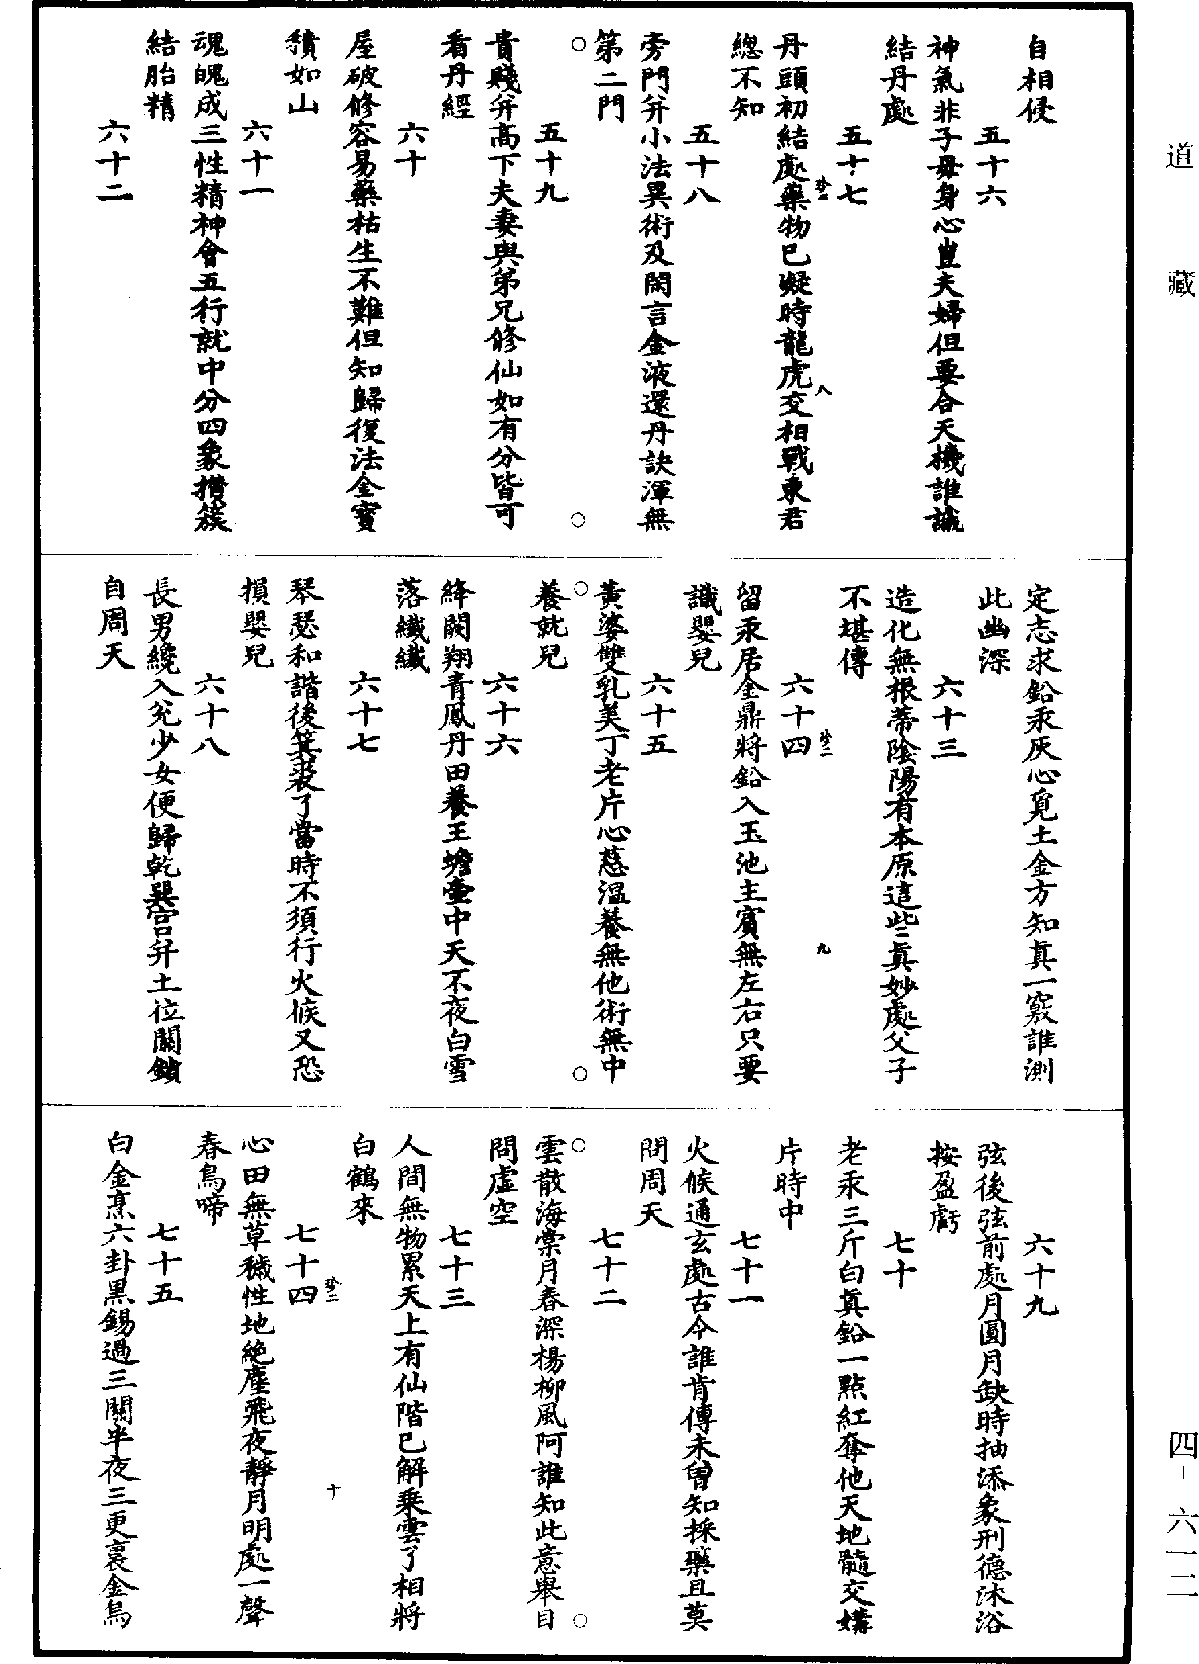 道藏
自相侵
五十六
神氣非子母身心豈夫婦但要合天機誰識
結丹處
五十七
丹頭初結處藥物已凝時龍虎交相戰東君
總不知
五十八
旁門并小法異術及閑言金液還丹訣渾無
第二門
五十九
貴賤并高下夫妻與弟兄修仙如有分皆可
看丹經
六十
屋破修容易藥枯生不難但知歸復法金寶
積如山
六十一
魂魄成三性精神會五行就中分四象攢簇
結胎精
六十二
定志求鉛汞灰心覓土金方知真一竅誰測
此幽深
六十三
造化無根蒂陰陽有本原這些真妙處父子
不堪傳
六十四
留汞居金鼎將鉛入玉池主賓無左右只要
識嬰兒
六十五
黃婆雙乳美丁老片心慈溫養無他術無中
養就兒
六十六
絳闕翔青鳳丹田養玉蟾壺中天不夜白雪
落纖纖
六十七
琴瑟和諧後箕裘了當時不須行火候又恐
損嬰兒
六十八
長男纔入兌少女便歸乾巽宮并土位關鎖
自周天
六十九
弦後弦前處月圓月缺時抽添象刑德沐浴
按盈虧
七十
老汞三斤白真鉛一點紅奪他天地髓交媾
片時中
七十一
火候通玄處古今誰肯傳未曾知採藥且莫
問周天
七十二
雲散海棠月春深楊柳風阿誰知此意舉目
問虛空
七十三
人間無物累天上有仙階已解乘雲了相將
白鶴來
七十四
心田無草穢性地絕塵飛夜靜月明處一聲
春鳥啼
七十五
白金烹六卦黑錫過三關半夜三更裏金烏
八
九
十
四-六一二